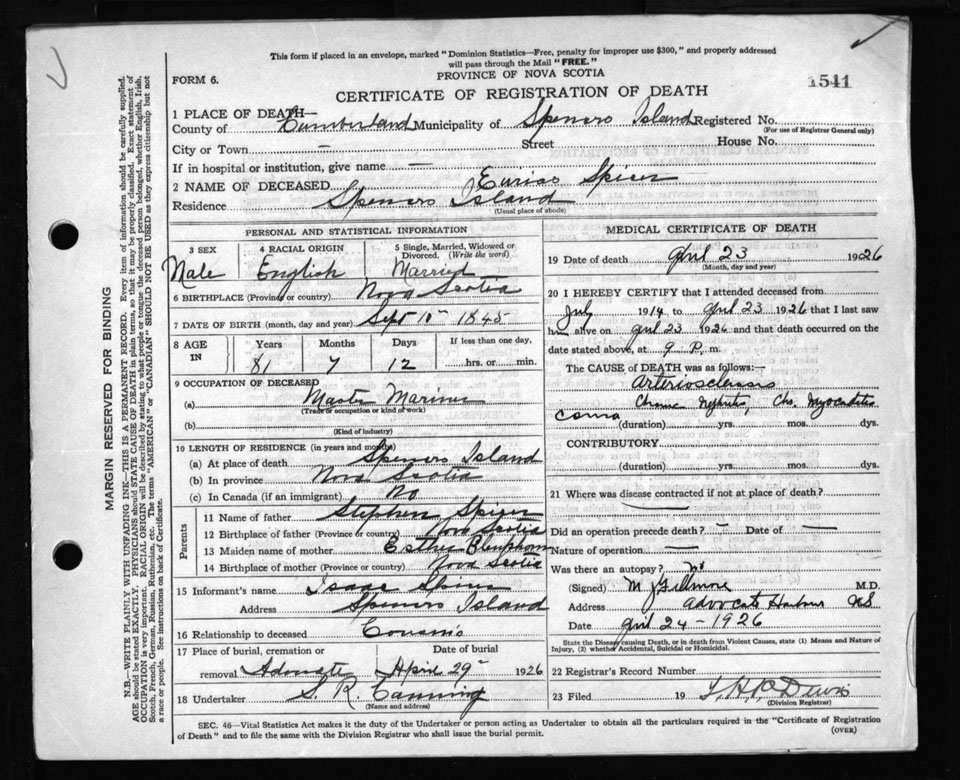 This form if placed in an envelope, marked "Dominion Statistics—Free, penalty for improper use $300," and properly addressed
will pass through the Mail "FREE."
FORM 6.
PROVINCE OF NOVA SCOTIA
1541
CERTIFICATE OF REGISTRATION OF DEATH
1 PLACE OF DEATH—
County of Cumberland Municipality of Spencers Island Registered No.
(For use of Registrar General only)
City or Town — Street House No.
If in hospital or institution, give name —
2 NAME OF DECEASED Spicer
Residence Spencers Island
(Usual place of abode)
PERSONAL AND STATISTICAL INFORMATION
3 SEX 4 RACIAL ORIGIN 5 Single, Married, Widowed or Divorced. (Write the word)
Male English Married
6 BIRTHPLACE (Province or country) Nova Scotia
7 DATE OF BIRTH (month, day and year) Sept 10th 1845
8 AGE IN Years Months Days If less than one day,
81 7 12 hrs. or min.
9 OCCUPATION OF DECEASED
(a) Master Mariner
(Trade or occupation or kind of work)
(b)
(Kind of industry)
10 LENGTH OF RESIDENCE (in years and months)
(a) At place of death Spencers Island
(b) In province Nova Scotia
(c) In Canada (if an immigrant) No
Parents
11 Name of father Stephen Spicer
12 Birthplace of father (Province or country) Nova Scotia
13 Maiden name of mother Esther
14 Birthplace of mother Nova Scotia
15 Informant's name Isaac Spicer
Address Spencers Island
16 Relationship to deceased Cousin
17 Place of burial, cremation or removal Date of burial
Advocate April 29th 1926
18 Undertaker S. R. Canning
(Name and address)
MEDICAL CERTIFICATE OF DEATH
19 Date of death April 23 1926
(Month, day and year)
20 I HEREBY CERTIFY that I attended deceased from
July 1914 to April 23 1926 that I last saw
him alive on April 23 1926 and that death occurred on
date stated above, at 9 P. m.
The CAUSE of DEATH was as follows:—
Arteriosclerosis
Chronic Nephritis, Chr. Myocarditis
Coma
(duration) yrs. mos. dys.
CONTRIBUTORY.
(duration) yrs. mos. dys.
21 Where was disease contracted if not at place of death?
Did an operation precede death? — Date of —
Nature of operation —
Was there an autopsy? No
(Signed) M. J. Gillmore M.D.
Address Advocate Harbour N.S
Date April 24 - 1926
State the Disease causing Death, or in death from Violent Causes, state (1) Means and Nature of
Injury, (2) whether Accidental, Suicidal or Homicidal.
22 Registrar's Record Number
23 Filed 19
(Division Registrar)
SEC. 46—Vital Statistics Act makes it the duty of the Undertaker or person acting as Undertaker to obtain all the particulars required in the "Certificate of Registration
of Death" and to file the same with the Division Registrar who shall issue the burial permit.
(OVER)
MARGIN RESERVED FOR BINDING
N.B.—WRITE PLAINLY WITH UNFADING INK—THIS IS A PERMANENT RECORD. Every item of information should be carefully supplied.
AGE should be stated EXACTLY. PHYSICIANS should STATE CAUSE OF DEATH in plain terms, so that it may be properly classified. Exact statement of
OCCUPATION is very important. RACIAL ORIGIN will be described by stating to what people or tongue the deceased person belonged, whether English, Irish,
Scotch, French, German, Russian, Ruthenian, etc. The terms "AMERICAN" or "CANADIAN" SHOULD NOT BE USED as they express citizenship but not
a race or people. See instructions on back of Certificate.